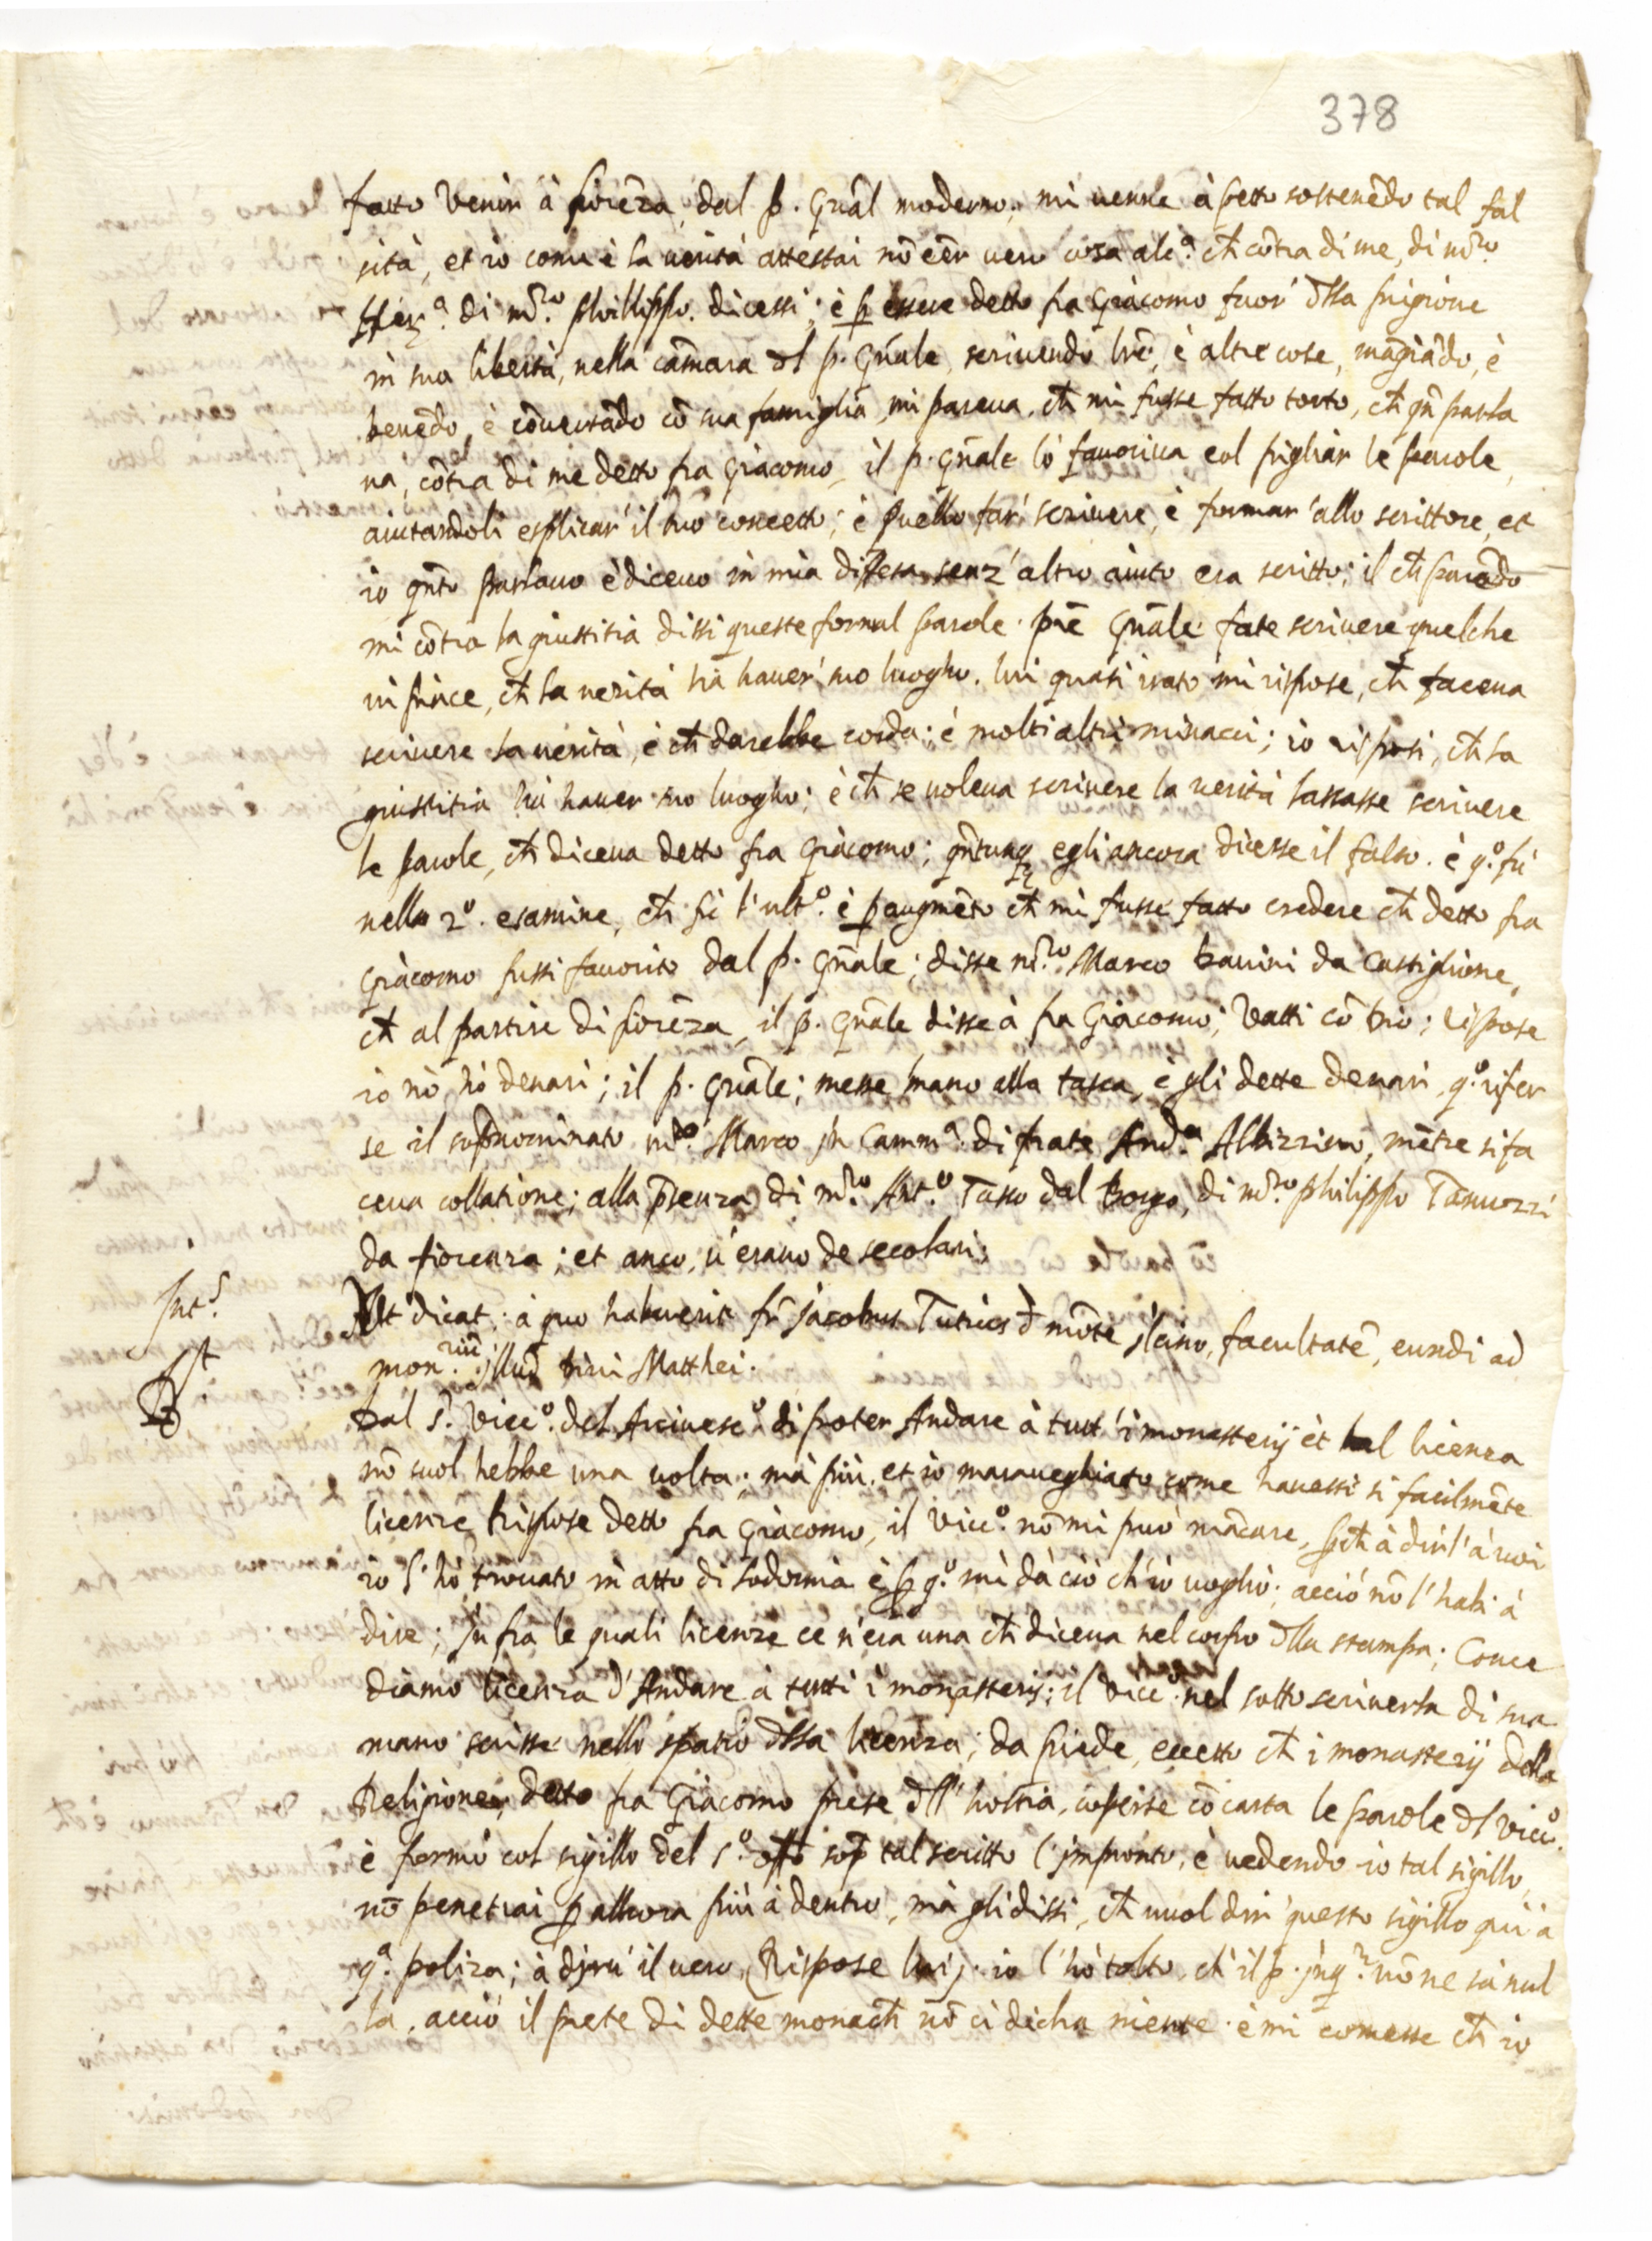 378
fatto venir à fiorēza, dal p. gn̄al moderno, mi venne à petto sostenēdo tal fal
sità, et io come è la verità attestai nō eēr vero cosa alc.ª ch̄ cōtra di me, di m̄.ro
di m̄.ro Phillippo dicessi; è p̱ essere detto fra Giacomo fuor' dlla prigione
in sua libertà, nella cāmara dl p. gn̄ale, scrivendo lrē, è altre cose, māgiādo, è
bevēdo, è cōversādo cō sua famiglia, mi pareva, ch̄ mi fusse fatto torto, ch̄ qn̄ parla
va, cōtra di me detto fra Giacomo, il p. gn̄ale lo favoriva col pigliar le parole,
aiutandoli esplicar' il suo concetto; è quello far' scrivere, è formar' allo scrittore, et
io qn̄to parlavo è dicevo in mia difesa, senz' altro aiuto era scritto; il ch̄ parēdo
mi cōtra la giustitia dissi queste formal parole. prē gn̄ale fate scrivere quelche
vi piace, ch̄ la verità hà haver' suo luogho. lui quasi irato mi rispose, ch̄ faceva
scrivere la verità, è ch̄ darebbe corda; è molti altri minacci; io risposi, ch̄ la
giustitia hà haver suo luogho; è ch̄ se voleva scrivere la verità lassasse scrivere
le parole, ch̄ diceva detto fra Giacomo; qn̄tunq̱ egli ancora dicesse il falso. è q.º fù
nello 2º. esamine, ch̄ fù l'ult.º è p̱ augmēto ch̄ mi fusse fatto credere ch̄ detto fra
Giacomo fussi favorito dal p. gn̄ale; disse m̄.ro Marco bavini da Castiglione,
ch̄ al partire di fiorēza, il p. gn̄ale disse à fra Giacomo; Vatti cō Dio; rispose
io nō hò denari; il p. gn̄ale; messe mano alla tasca, è gli dette denari, q.º rifer
se il sop̄nominato m̄.ro Marco in Camm.ª di frate And.ª Albizzino, mētre si fa
ceva collatione; alla p̄senza di m̄.ro Ant.º Tasso dal Borgo, di m̄.ro Philippo Tanuzzi
da fiorenza; et anco, v'erano de secolari;
Int.s
Ut dicat; à quo habuerit fr̄ Jacobus d mōte ilcino, facultatē, eundi ad
mon.riū illud divi Matthei.
Rt
Dal s.r Vicc.º del Arcivesc.º di poter Andare à tutt'i monasterij èt tal licenza
nō suol hebbe una volta; mà più. et io maravegliato come havessi sì facilmēte
licenze, rispose detto fra Giacomo, il Vicc.º nō mi può mācare, p̱ch̄ à dirl' à voi
io l'hò trovato in atto di sodomia è p̱ q.º mi dà ciò ch'io voglio; acciò nō l'habi à
dire; In frà le quali licenze ce n'era una ch̄ diceva nel corpo dlla stampa; Conce
diamo licenza d'Andare à tutti i monasterij; il Vicc.º nel sotto scriverla di sua
mano scrisse nello spatio dlla licenza, da piede, eccetto ch̄ i monasterij della
Religione, detto fra Giacomo prese dll'hostia, coperse cō carta le parole dl Vicc.º
è fermò col sigillo del s.º offº sop̄ tal scritto l'impronto, è vedendo io tal sigillo
nō penetrai p̱ allhora più à dentro, mà gli dissi, ch̄ vuol dir' questo sigillo quì à
q.ª poliza; à dirvi il vero, (Rispose lui); io l'hò tolto, ch' il p. inq.r nō ne sà nul
la, acciò il prete di dette monach̄ nō ci dicha niente. è mi comesse ch̄ io